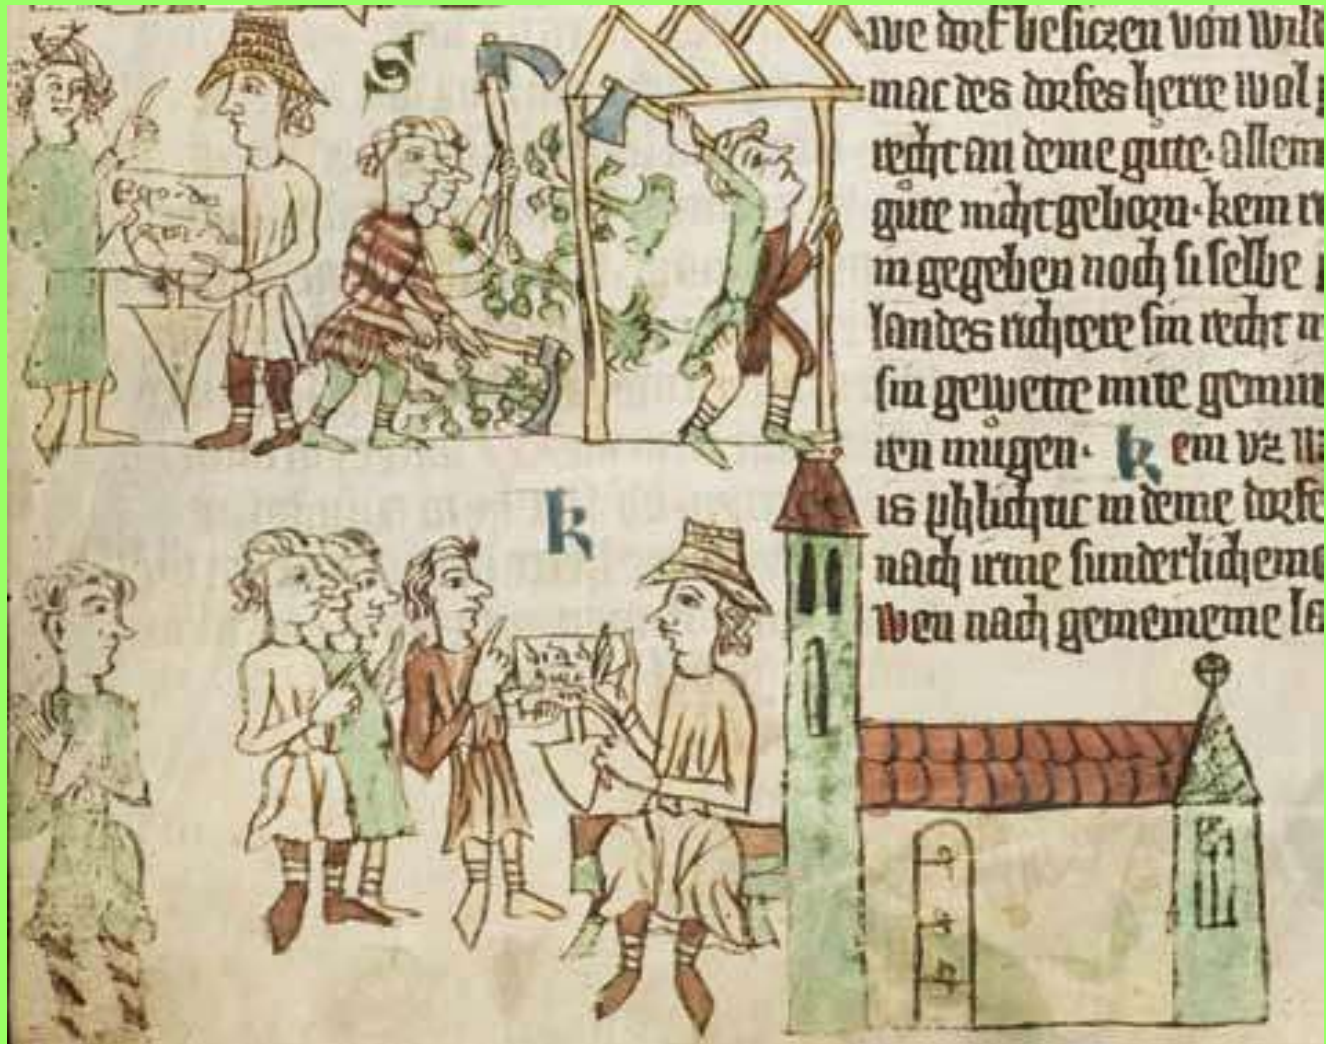 S
Ego dei
gra
k
we dorf besiczen von wild
mac des dorfes herre wol
recht an deme gůte. Allein
gůte nicht geborn. kein re
in gegeben noch si selbe
landes richtere sin recht m
sin gewette mite gemin
ren můgen. kein vz w
is phlichtic in deme dorfe
nach irme sunderlicheme
wen nach gemeineme la